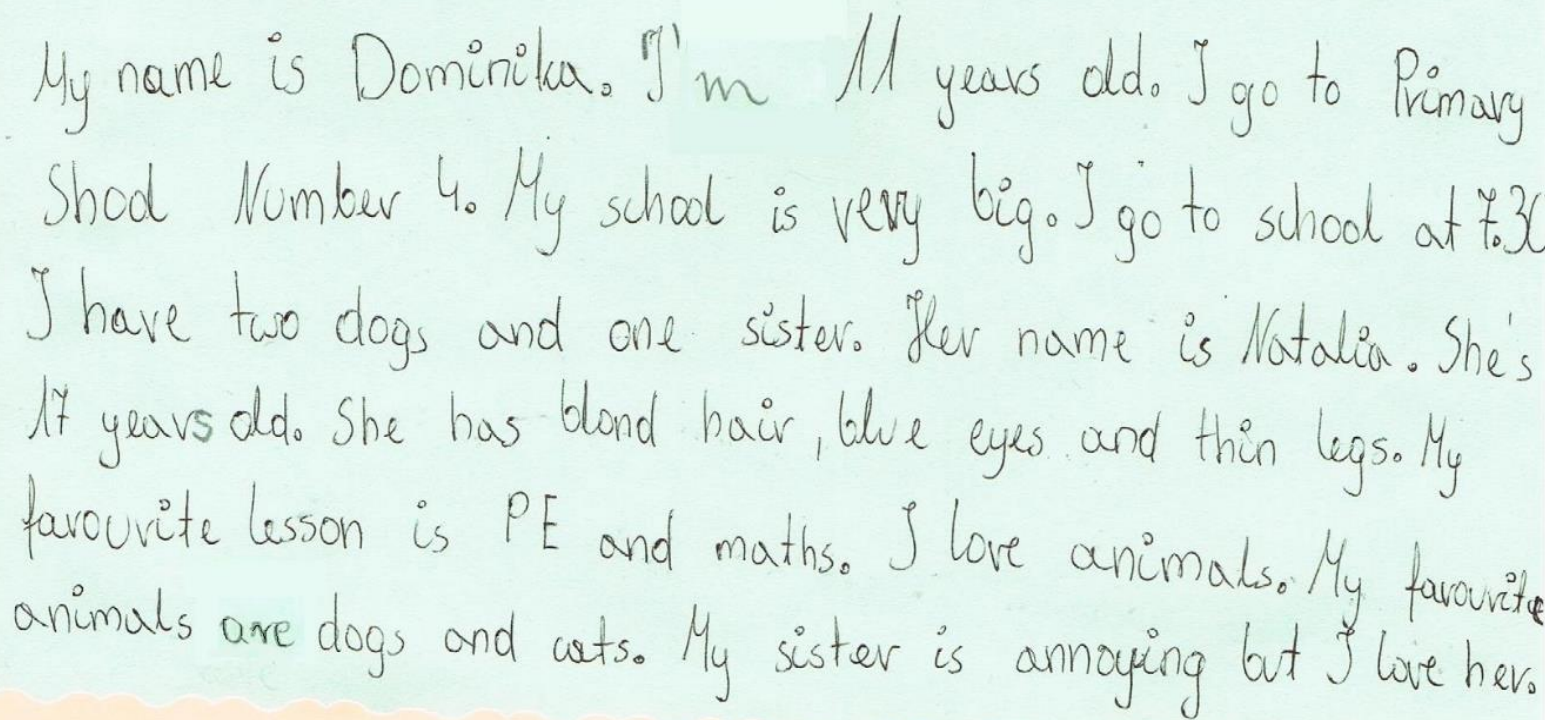 My name is Dominika. I'm 11 years old. I go to Primary
Shool Number 4. My school is very big. I go to school at 7.30
I have two dogs and one sister. Her name is Natalia. She's
17 years old. She has blond hair, blue eyes and thin legs. My
favourite lesson is PE and maths. I love animals. My favourite
animals are dogs and cats. My sister is annoying but I love her.